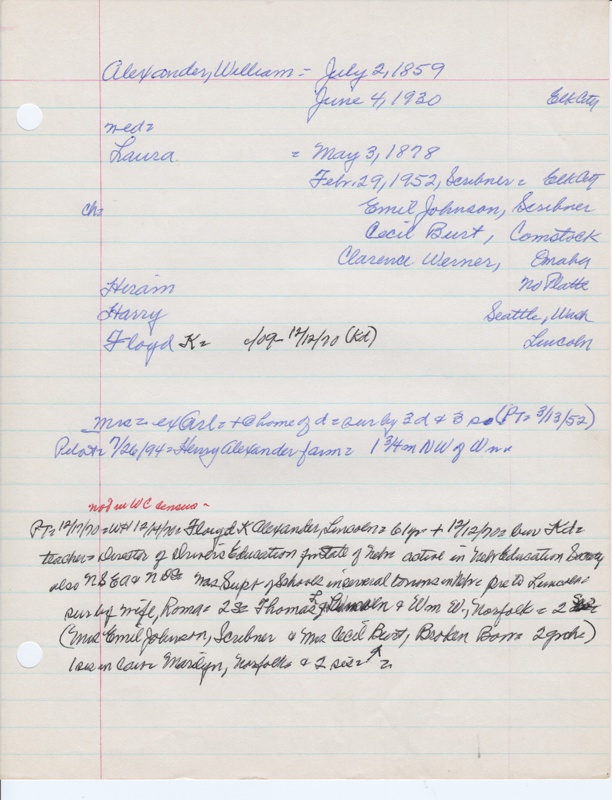 Alexander, William = July 2, 1859
June 4, 1930 Elk City
med=
Laura = May 3, 1878
Feb. 29, 1952, Scribner = Elk City
ch= Emil Johnson, Scribner
Cecil Burt, Comstock
Clarence Werner, Omaha
Hiram No Platte
Harry Seattle, Wash
Floyd K= 12/12/70 (Kd) Lincoln
Mrs = ex Arl = + @ home of d = sur by 3 d & 3 so (PT= 3/13/52)
7/26/94 = Henry Alexander farm = 1 3/4 m NW of
not in WC census -
PT= 12/17/70 = 12/14/70 = Floyd K Alexander, Lincoln = 61 yr + 12/12/70 = bur Kd =
teacher = Director of Drivers Education for State of Nebr active in Nebr Education Society
also NSEA & Was Supt of Schools in several towns in Nebr = pre to Lincoln =
sur by wife, Roma = 2 s = Thomas L, Lincoln & Wm W, Norfolk = 2
(Mrs Emil Johnson, Scribner & Mrs Cecil Burt, Broken Bow = 2 grch =)
1 sis in law = Marilyn, Norfolk = & 2 sis = ↑ =